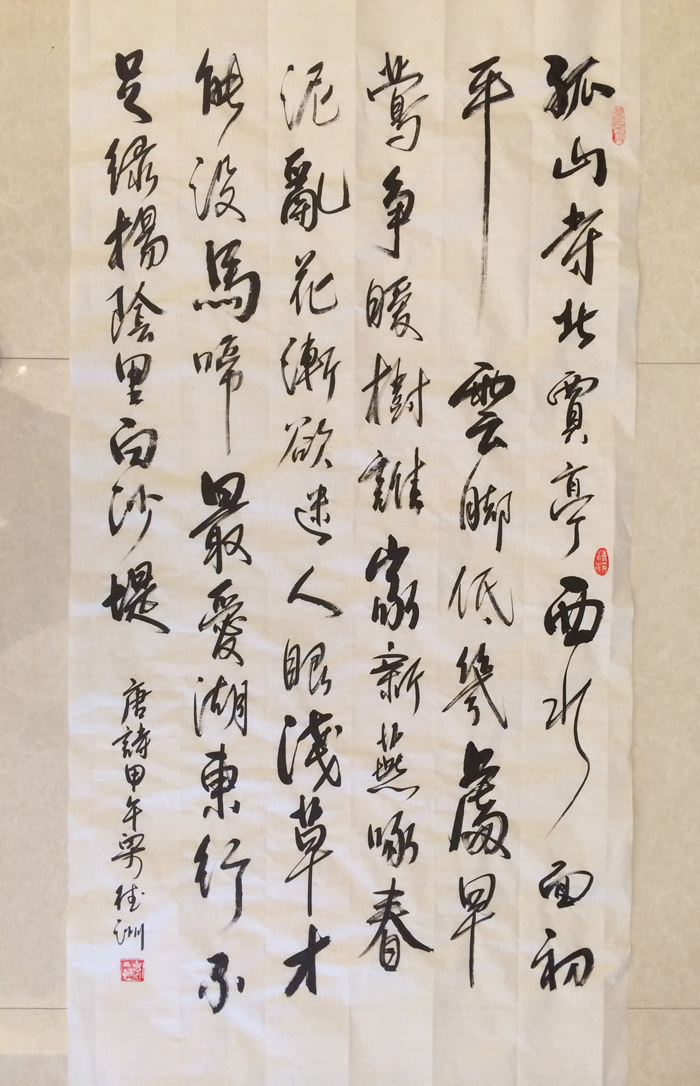 孤山寺北賈亭西水面初
平雲脚低幾處早
鶯争暖樹誰家新燕啄春
泥亂花漸欲迷人眼淺草才
能没馬啼最愛湖東行不
足绿楊陰里白沙堤
唐詩甲午梁桂洲